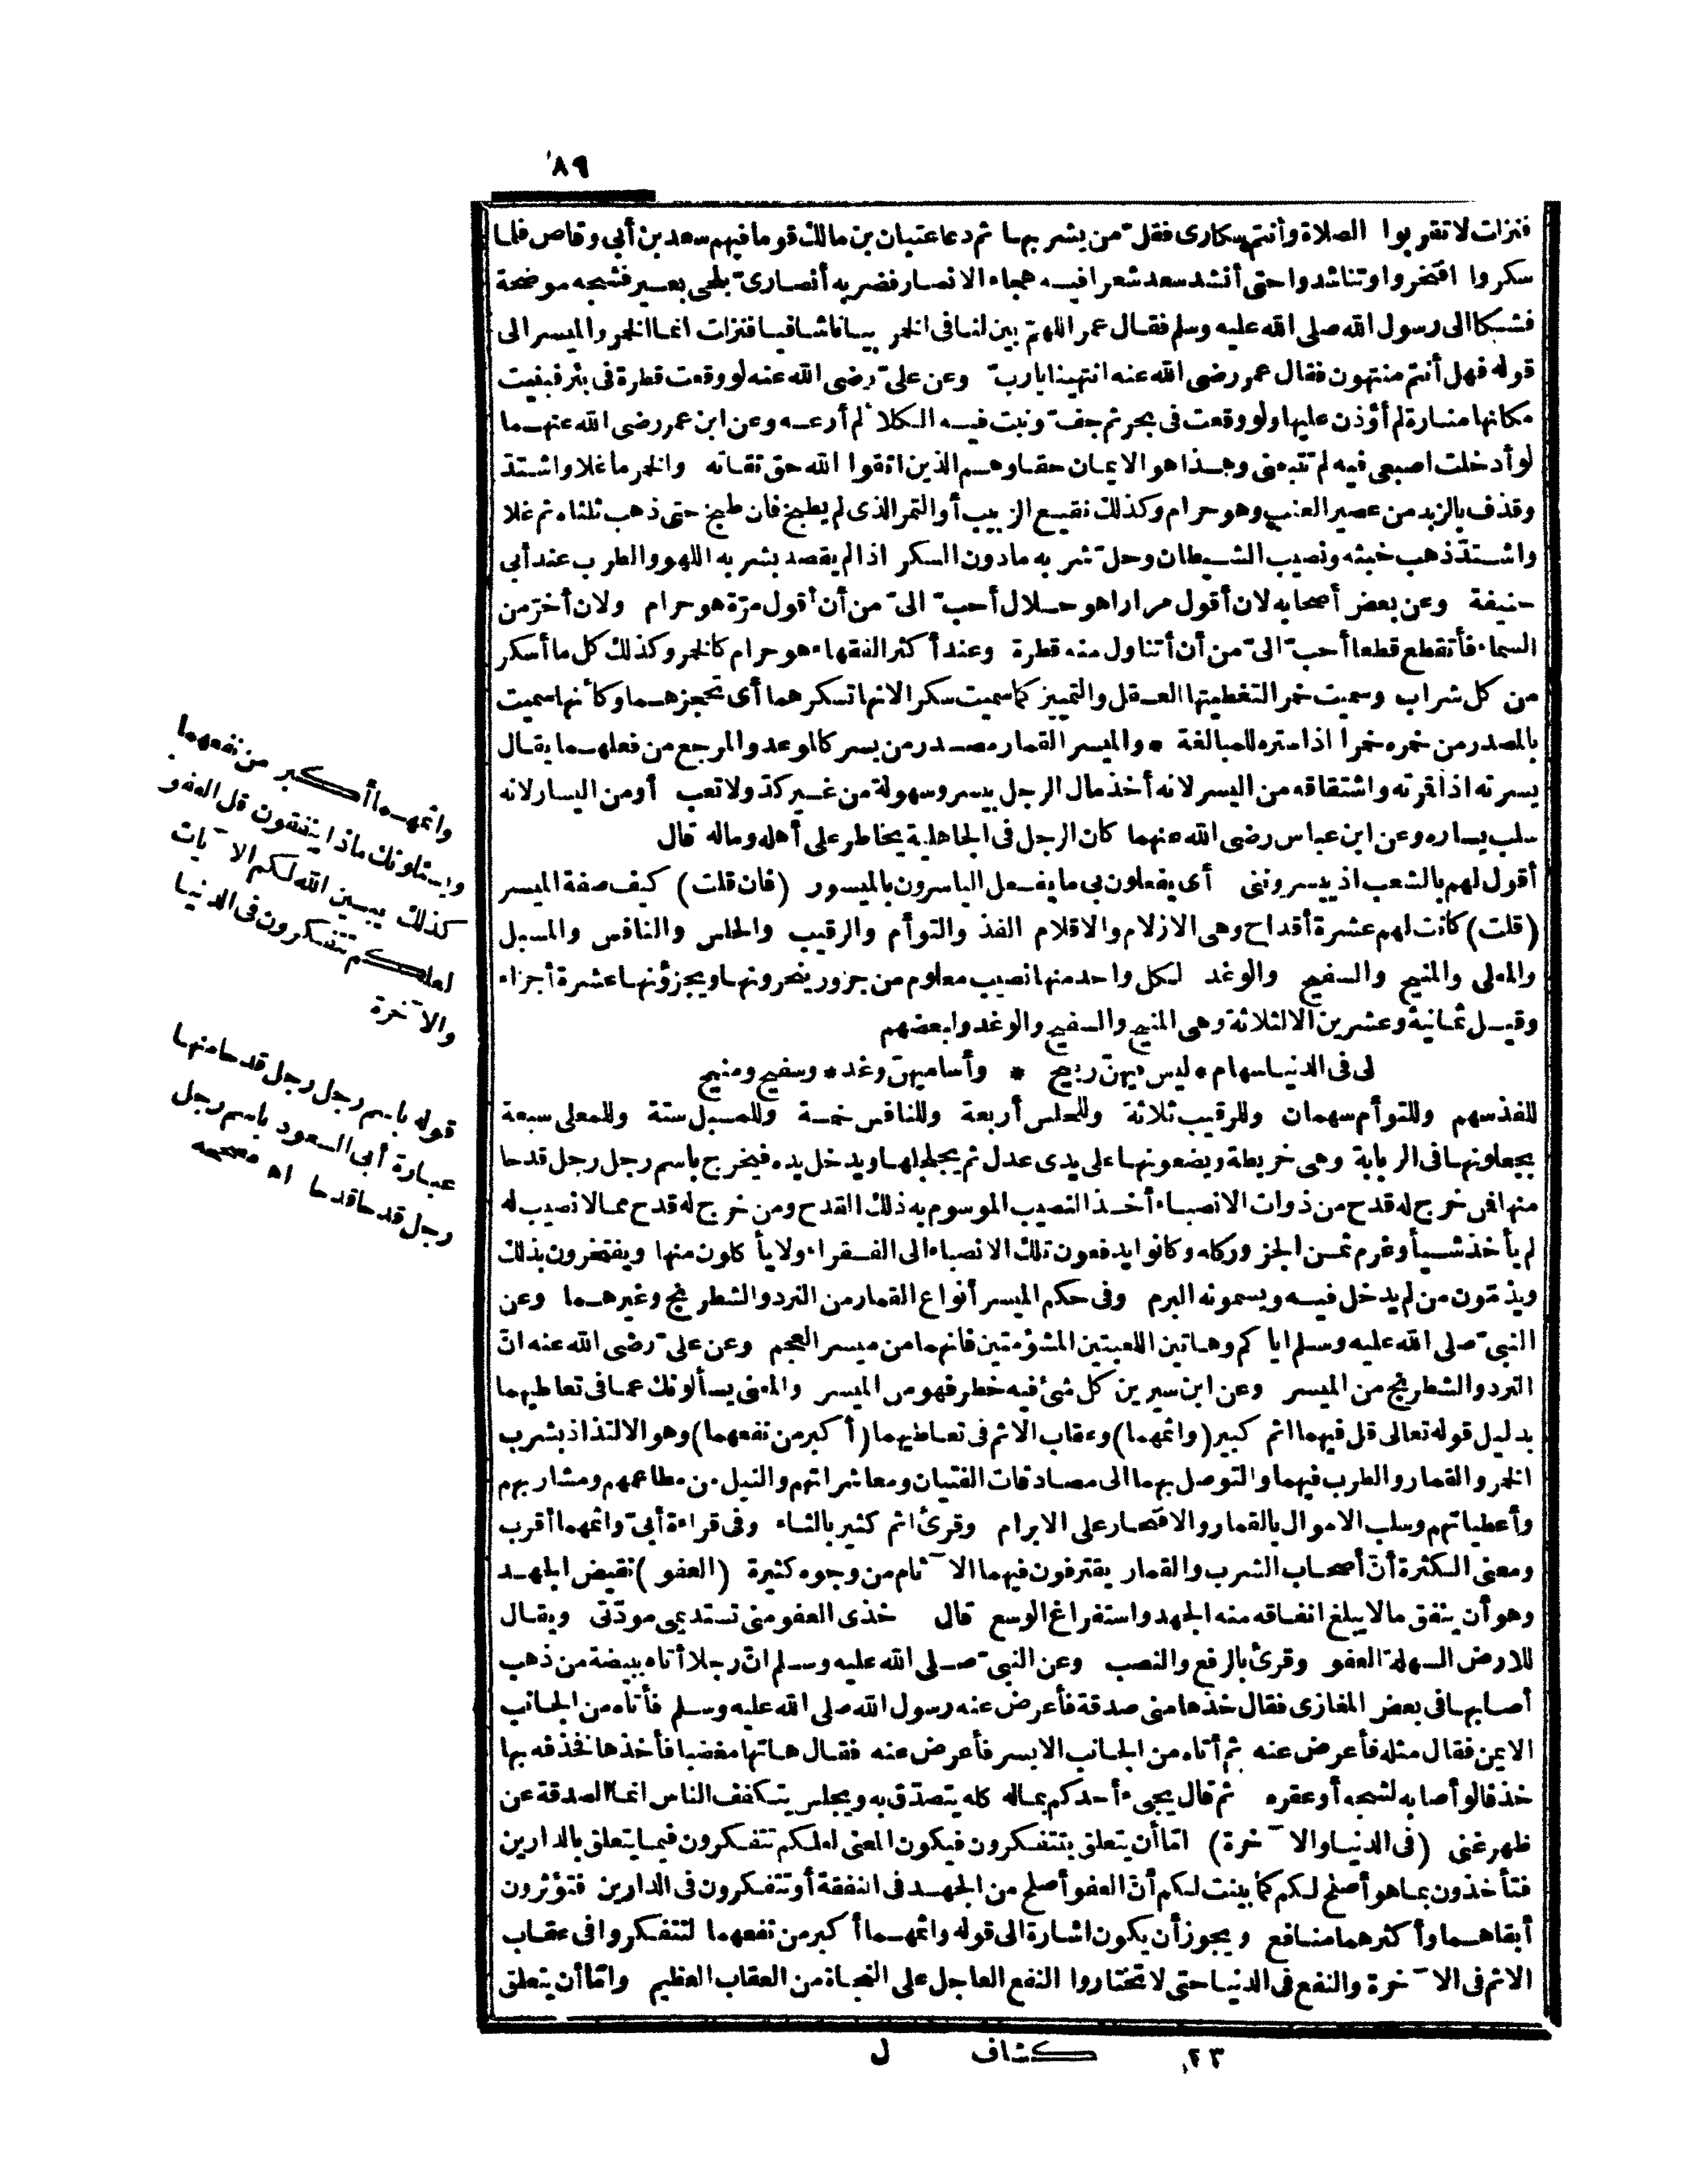 ٨٩
فنزات لا تقربوا الصلاة وأنتم سكارى فقل من يشربها ثم دعا عتبان بن مالك قوما فيهم سعد بن أبى وقاص فلما
سكروا افتخروا وتناشدوا حتى أنشد سعد شعرا فيه هجاء الانصار فضربه أنصارى بلحى بعير فشجه موضحة
فشكا الى رسول الله صلى الله عليه وسلم فقال عمر اللهم بين لنا فى الخمر بيانا شافيا فنزات انما الخمر والميسر الى
قوله فهل أنتم منتهون فقال عمر رضى الله عنه انتهينا يارب وعن على رضى الله عنه لو وقعت قطرة فى بئر فبنيت
مكانها منارة لم أؤذن عليها ولو وقعت فى بحر ثم جف ونبت فيه الكلأ لم أرعه وعن ابن عمر رضى الله عنهما
لو أدخلت اصبعى فيه لم تتبعنى وهذا هو الايمان حقا وهم الذين اتقوا الله حق تقاته والخمر ما غلا واشتد
وقذف بالزبد من عصير العنب وهو حرام وكذلك نقيع الزبيب أو التمر الذى لم يطبخ فان طبخ حتى ذهب ثلثاه ثم غلا
واشتد ذهب خبثه ونصيب الشيطان وحل شربه ما دون السكر اذا لم يقصد بشربه اللهو والطرب عند أبى
حنيفة وعن بعض أصحابه لان أقول مرارا هو حلال أحب الى من أن أقول مرة هو حرام ولان أخر من
السماء فأتقطع قطعا أحب الى من أن أتناول منه قطرة وعند أكثر الفقهاء هو حرام كالخمر وكذلك كل ما أسكر
من كل شراب وسميت خمرا لتغطيتها العقل والتمييز كما سميت سكرا لانها تسكرهما أى تحجزهما وكأنها سميت
بالمصدر من خمره خمرا اذا ستره للمبالغة * والميسر القمار مصدر من يسر كالموعد والمرجع من فعلهما يقال
يسرته اذا قرته واشتقاقه من اليسر لانه أخذ مال الرجل بيسر وسهولة من غير كد ولا تعب أو من اليسار لانه
سلب يساره وعن ابن عباس رضى الله عنهما كان الرجل فى الجاهلية يخاطر على أهله وماله قال
أقول لهم بالشعب اذ ييسروننى أى يفعلون بى ما يفعل الياسرون بالميسور (فان قلت) كيف صفة الميسر
(قلت) كانت لهم عشرة أقداح وهى الازلام والاقلام الفذ والتوأم والرقيب والحلس والنافس والمسبل
والمعلى والمنيح والسفيح والوغد لكل واحد منها نصيب معلوم من جزور ينحرونها ويجزؤنها عشرة أجزاء
وقيل ثمانية وعشرين الا لثلاثة وهى المنيح والسفيح والوغد ولبعضهم
لى فى الدنيا سهام * ليس فيهن ربيح * وأساميهن وغد * وسفيح ومنيح
للفذ سهم وللتوأم سهمان وللرقيب ثلاثة وللحلس أربعة وللنافس خمسة وللمسبل ستة وللمعلى سبعة
يجعلونها فى الربابة وهى خريطة ويضعونها على يدى عدل ثم يجلجلها ويدخل يده فيخرج باسم رجل رجل قدحا
منها فمن خرج له قدح من ذوات الانصباء أخذ النصيب الموسوم به ذلك القدح ومن خرج له قدح مما لا نصيب له
لم يأخذ شيأ وغرم ثمن الجزور كله وكانوا يدفعون تلك الانصباء الى الفقراء ولا يأكلون منها ويفتخرون بذلك
ويذمون من لم يدخل فيه ويسمونه البرم وفى حكم الميسر أنواع القمار من النرد والشطرنج وغيرهما وعن
النبى صلى الله عليه وسلم ايا كم وهاتين اللعبتين المشؤمتين فانهما من ميسر العجم وعن على رضى الله عنه ان
النرد والشطرنج من الميسر وعن ابن سيرين كل شئ فيه خطر فهو من الميسر والمعنى يسألونك عما فى تعاطيهما
بدليل قوله تعالى قل فيهما اثم كبير (واثمهما) وعقاب الاثم فى تعاطيهما (أكبر من نفعهما) وهو الالتذاذ بشرب
الخمر والقمار والطرب فيهما والتوصل بهما الى مصادقات الفتيان ومعاشراتهم والنيل من مطاعمهم ومشاربهم
وأعطياتهم وسلب الاموال بالقمار والافتخار على الابرام وقرئ اثم كثير بالثاء وفى قراءة أبى واثمهما أقرب
ومعنى الكثرة أن أصحاب الشرب والقمار يقترفون فيهما الآثام من وجوه كثيرة (العفو) نقيض الجهد
وهو أن ينفق ما لا يبلغ انفاقه منه الجهد واستفراغ الوسع قال خذى العفو منى تستديمى مودتى ويقال
للارض السهلة العفو وقرئ بالرفع والنصب وعن النبى صلى الله عليه وسلم ان رجلا أتاه ببيضة من ذهب
أصابها فى بعض المغازى فقال خذها منى صدقة فأعرض عنه رسول الله صلى الله عليه وسلم فأتاه من الجانب
الايمن فقال مثله فأعرض عنه ثم أتاه من الجانب الايسر فأعرض عنه فقال هاتها مغضبا فأخذها فخذفه بها
خذفا لو أصابه لشجه أو عقره ثم قال يجىء أحدكم بماله كله يتصدق به ويجلس يتكفف الناس انما الصدقة عن
ظهر غنى (فى الدنيا والآخرة) اما أن يتعلق بتتفكرون فيكون المعنى لعلكم تتفكرون فيما يتعلق بالدارين
فتأخذون بما هو أصلح لكم كما بينت لكم أن العفو أصلح من الجهد فى النفقة أو تتفكرون فى الدارين فتؤثرون
أبقاهما وأكثرهما منافع ويجوز أن يكون اشارة الى قوله واثمهما أكبر من نفعهما لتتفكروا فى عقاب
الاثم فى الآخرة والنفع فى الدنيا حتى لا تختاروا النفع العاجل على النجاة من العقاب العظيم واما أن يتعلق
واثمهما أكبر من نفعهما
ويسئلونك ماذا ينفقون قل العفو
كذلك يبين الله لكم الآيات
لعلكم تتفكرون فى الدنيا
والآخرة
قوله باسم رجل رجل قدحا منها
عبارة أبى السعود باسم رجل
رجل قدحا قدحا اه مصححه
٢٣ كشاف ل